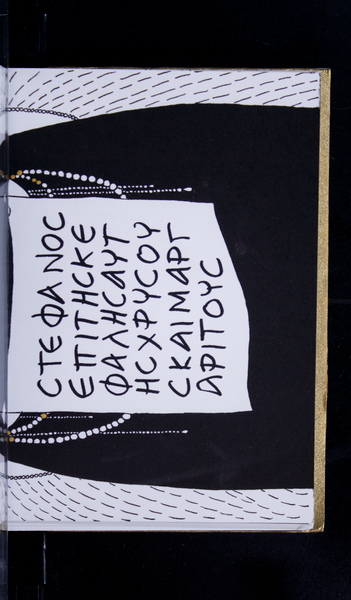 CΤΕΦΑΝΟC
ΕΠΙΤΗCΚΕ
ΦΑΛΗCΑΥΤ
ΗCΧΡΥCΟΥ
CΚΑΙΜΑΡΓ
ΑΡΙΤΟΥC